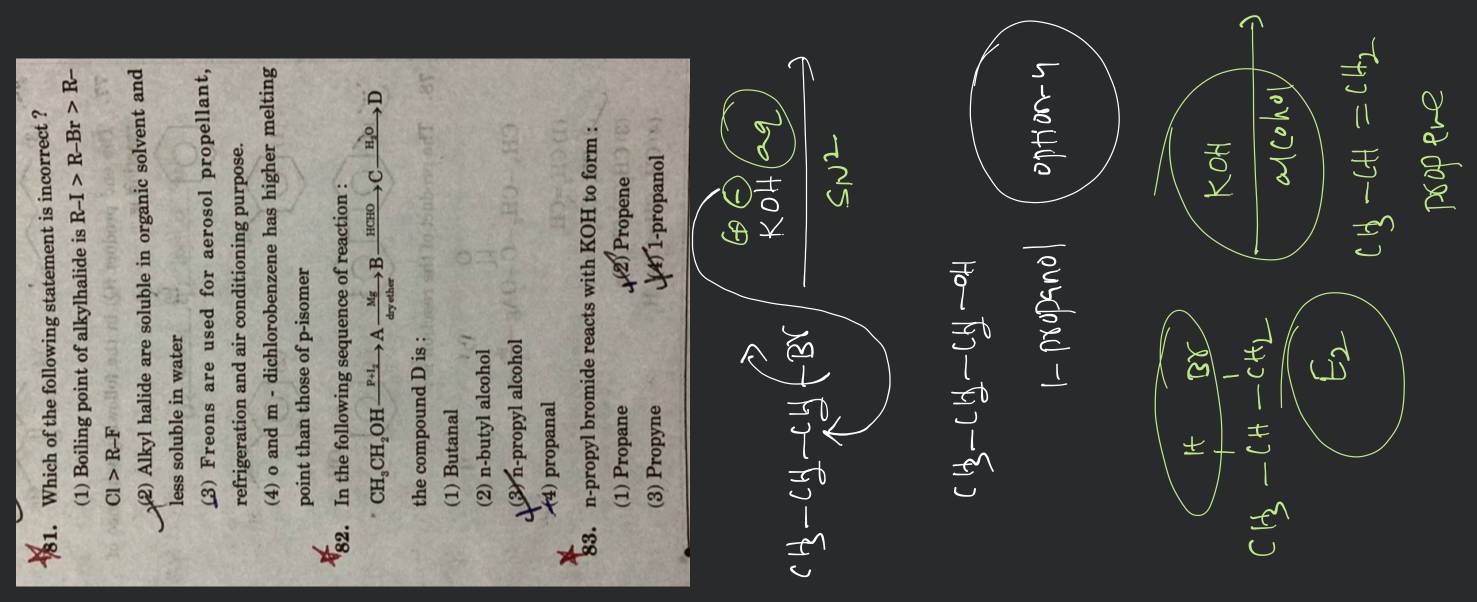 81. Which of the following statement is incorrect ?
(1) Boiling point of alkylhalide is R-I > R-Br > R-
Cl > R-F
(2) Alkyl halide are soluble in organic solvent and
less soluble in water
(3) Freons are used for aerosol propellant,
refrigeration and air conditioning purpose.
(4) o and m - dichlorobenzene has higher melting
point than those of p-isomer
82. In the following sequence of reaction :
CH₃CH₂OH —P+I₂→ A —Mg dry ether→ B —HCHO→ C —H₂O→ D
the compound D is :
(1) Butanal
(2) n-butyl alcohol
(3) n-propyl alcohol
(4) propanal
83. n-propyl bromide reacts with KOH to form :
(1) Propane (2) Propene
(3) Propyne (4) 1-propanol
⊕ ⊖
CH₃-CH₂-CH₂-Br KOH aq
SN2
CH₃-CH₂-CH₂-OH
1-propanol option-4
H Br KOH
CH₃-CH-CH₂ alcohol
E2 CH₃-CH=CH₂
propene